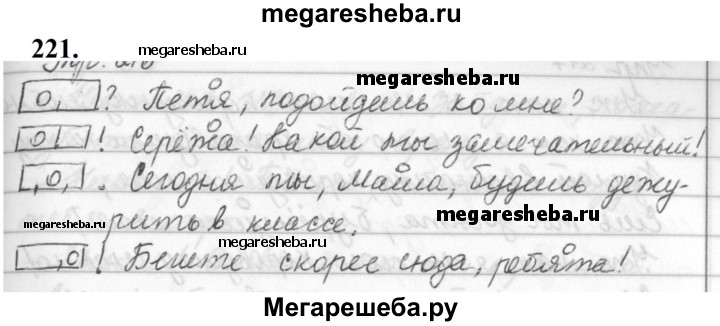 megaresheba.ru
221. megaresheba.ru
megaresheba.ru
[о, ]? Петя, подойдешь ко мне?
[о! ]! Серёжа! Какой ты замечательный!
[ ,о, ]. Сегодня ты, Маша, будешь дежу-
megaresheba.ru рить в классе. megaresheba.ru
megaresheba.ru
[ ,о]! Бегите скорее сюда, ребята!
Мегарешеба.ру